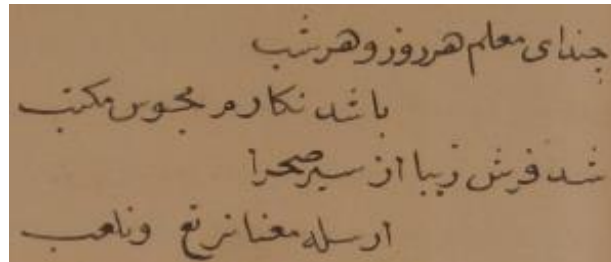 چند ای معلم هر روز و هر شب
باشد نکارم محبوس مکتب
شد فرش زیبا از سیر صحرا
ارسله معنا نرتع ونلعب